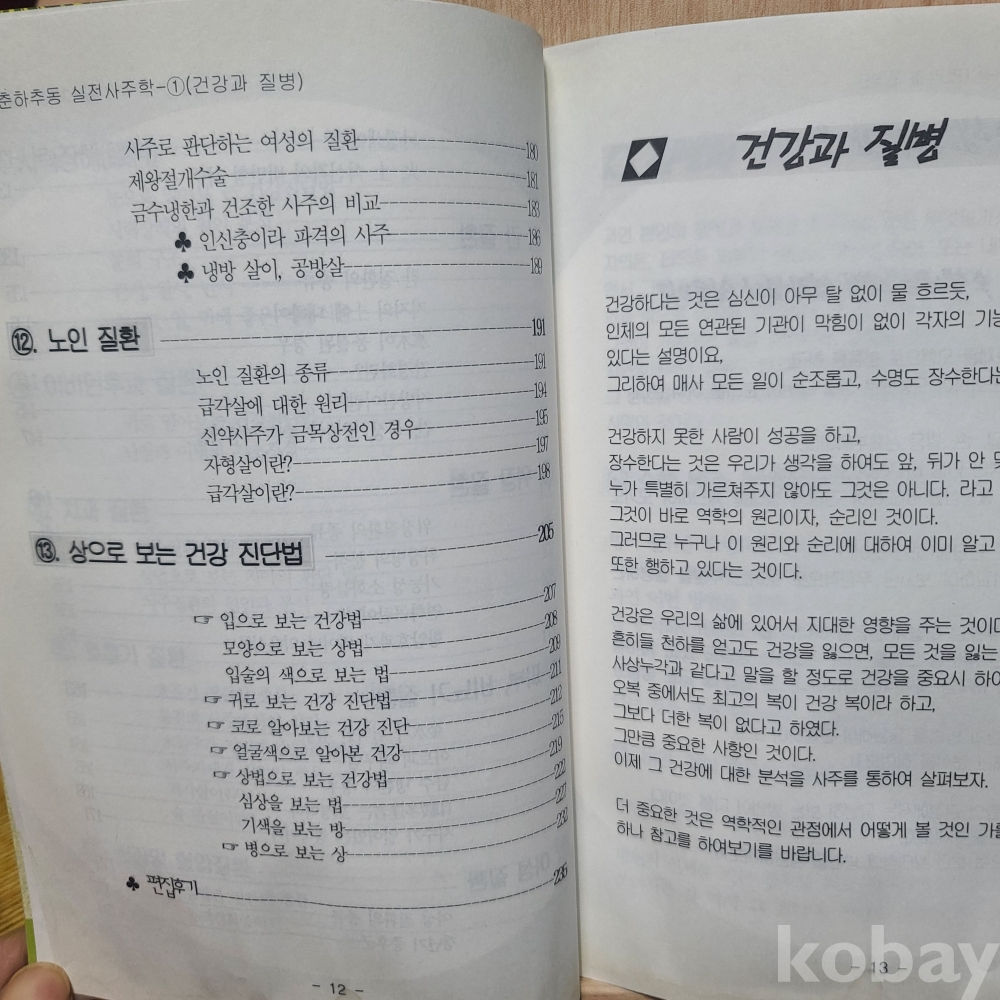 춘하추동 실전사주학-①(건강과 질병)
사주로 판단하는 여성의 질환 180
제왕절개수술 181
금수냉한과 건조한 사주의 비교 183
♣ 인신충이라 파격의 사주 186
♣ 냉방 살이, 공방살 189
⑫. 노인 질환 191
노인 질환의 종류 191
급각살에 대한 원리 194
신약사주가 금목상전인 경우 195
자형살이란? 197
급각살이란? 198
⑬. 상으로 보는 건강 진단법 205
☞ 입으로 보는 건강법 207
모양으로 보는 상법 208
입술의 색으로 보는 법 209
☞ 귀로 보는 건강 진단법 211
☞ 코로 알아보는 건강 진단 212
☞ 얼굴색으로 알아본 건강 215
☞ 상법으로 보는 건강법 219
심상을 보는 법 221
기색을 보는 방 227
☞ 병으로 보는 상 232
♣ 편집후기 235
- 12 -
건강과 질병
건강하다는 것은 심신이 아무 탈 없이 물 흐르듯,
인체의 모든 연관된 기관이 막힘이 없이 각자의 기능
있다는 설명이요,
그리하여 매사 모든 일이 순조롭고, 수명도 장수한다는
건강하지 못한 사람이 성공을 하고,
장수한다는 것은 우리가 생각을 하여도 앞, 뒤가 안
누가 특별히 가르쳐주지 않아도 그것은 아니다. 라고
그것이 바로 역학의 원리이자, 순리인 것이다.
그러므로 누구나 이 원리와 순리에 대하여 이미 알고
또한 행하고 있다는 것이다.
건강은 우리의 삶에 있어서 지대한 영향을 주는 것이다
흔히들 천하를 얻고도 건강을 잃으면, 모든 것을 잃는
사상누각과 같다고 말을 할 정도로 건강을 중요시 하여
오복 중에서도 최고의 복이 건강 복이라 하고,
그보다 더한 복이 없다고 하였다.
그만큼 중요한 사항인 것이다.
이제 그 건강에 대한 분석을 사주를 통하여 살펴보자.
더 중요한 것은 역학적인 관점에서 어떻게 볼 것인 가를
하나 참고를 하여보기를 바랍니다.
- 13 -
kobay